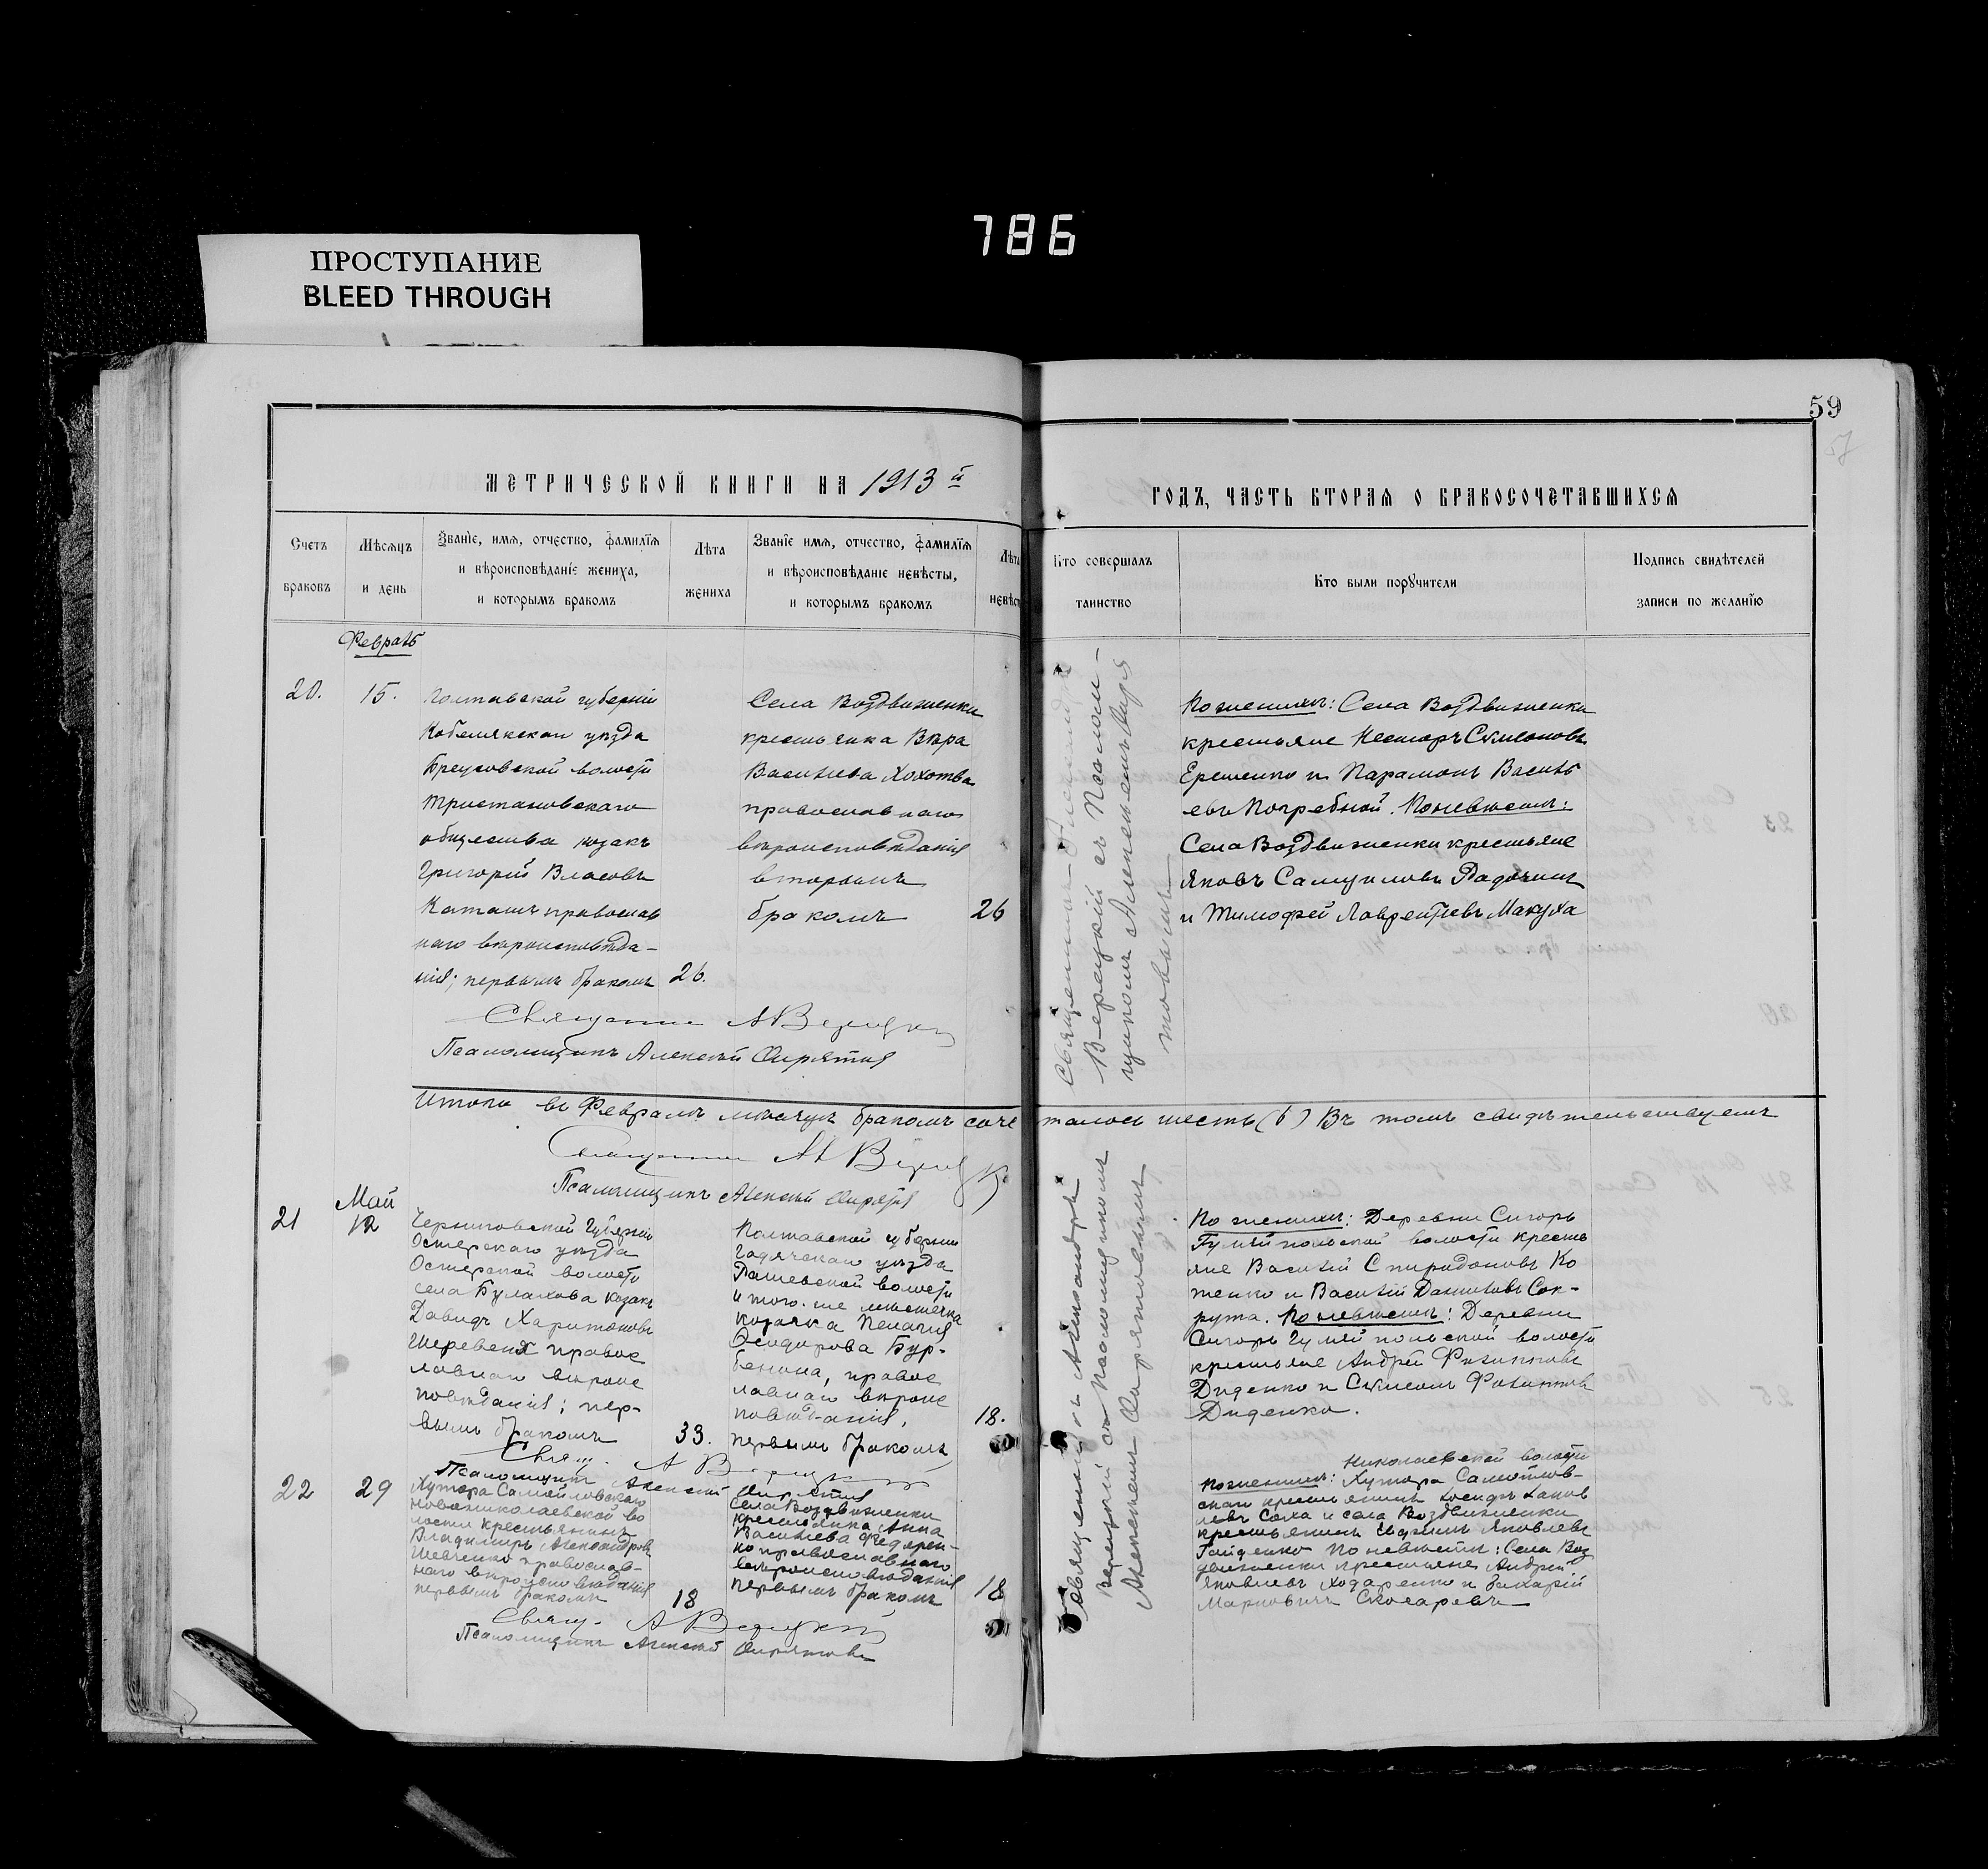 786
ПРОСТУПАНИЕ
BLEED THROUGH
59
57
МЕТРИЧЕСКОЙ КНИГИ НА 1913 й
ГОДЪ, ЧАСТЬ ВТОРАЯ О БРАКОСОЧЕТАВШИХСЯ
Счетъ браковъ
Мѣсяцъ и день
Званіе, имя, отчество, фамилія
и вѣроисповѣданіе жениха,
и которымъ бракомъ
Лѣта жениха
Званіе имя, отчество, фамилія
и вѣроисповѣданіе невѣсты,
и которымъ бракомъ
Лѣта
Кто совершалъ
таинство
Кто были поручители
Подпись свидѣтелей
записи по желанію
Февраль
20.
15.
Полтавской губерніи
Кобелякскаго уѣзда
Бреусовской волости
общества козакъ
Григорій Власовъ
православ
наго вѣроисповѣда-
нія; первымъ бракомъ
26.
Села Воздвиженки
крестьянка Вѣра
Васильева
православнаго
вѣроисповѣданія
вторымъ
бракомъ
26
Священникъ
Верецкій съ Псалом-
щикомъ Алексѣемъ
По женихѣ: Села Воздвиженки
крестьяне Несторъ Сѵмеоновъ
Ерешенко и Парамонъ Василь
евъ Погребной. По невѣстѣ:
Села Воздвиженки крестьяне
Яковъ Самуиловъ
и Тимофей Лаврентіевъ Макуха
Священникъ А Верецкій
Псаломщикъ Алексѣй
Итого въ Февралѣ мѣсяцѣ бракомъ соче талось шесть (6) Въ томъ свидѣтельствуемъ
Священникъ
Псаломщикъ Алексѣй
21
Май
12
Черниговской Губерніи
Остерскаго уѣзда
Остерской волости
села Булахова козакъ
Давидъ Харитоновъ
правос
лавнаго вѣроис
повѣданія; пер-
вымъ бракомъ
33.
Полтавской губерніи
Гадячскаго уѣзда
Рашевской волости
и того-же мѣстечка
козачка Пелагія
Ѳеодорова Бур-
правос
лавнаго вѣроис
повѣданія,
первымъ бракомъ
18.
Священникъ Александръ
Верецкій съ псаломщикомъ
Алексѣемъ
По женихѣ: Деревни Сигоръ
Гуляйпольской волости кресть
яне Василій Спиридоновъ Ко
и Василій Даниловъ Сок-
рута. По невѣстѣ: Деревни
Сигоръ Гуляйпольской волости
крестьяне Андрей Филипповъ
Диденко и Сѵмеонъ Филипповъ
Диденко.
Свящ. А Верецкій
Псаломщикъ Алексѣй
22
29
Хутора Самойловскаго
Новониколаевской во
лости крестьянинъ
Владимиръ Александровъ
Шевченко православ-
наго вѣроисповѣданія
первымъ бракомъ
18
Села Воздвиженки
крестьянка Анна
Васильева Федорен-
ко православнаго
вѣроисповѣданія
первымъ бракомъ
18
Священникъ
Верецкій съ псаломщикомъ
Алексѣемъ
Николаевской волости
По женихѣ: Хутора Самойлов-
скаго крестьянинъ Іосифъ
Соха и села Воздвиженки
крестьянинъ Яковлевъ
Гайденко По невѣстѣ: Села Воз
движенки крестьяне Андрей
Яковлевъ Ходаренко и Захарій
Марковичъ
Свящ. А Верецкій
Псаломщикъ Алексѣй